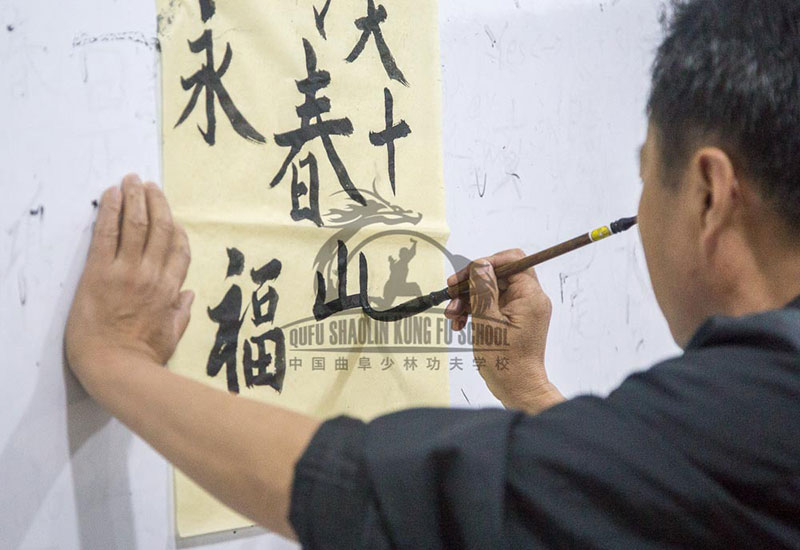 永 大
春 十
福 山
QUFU SHAOLIN KUNG FU SCHOOL
中国曲阜少林功夫学校